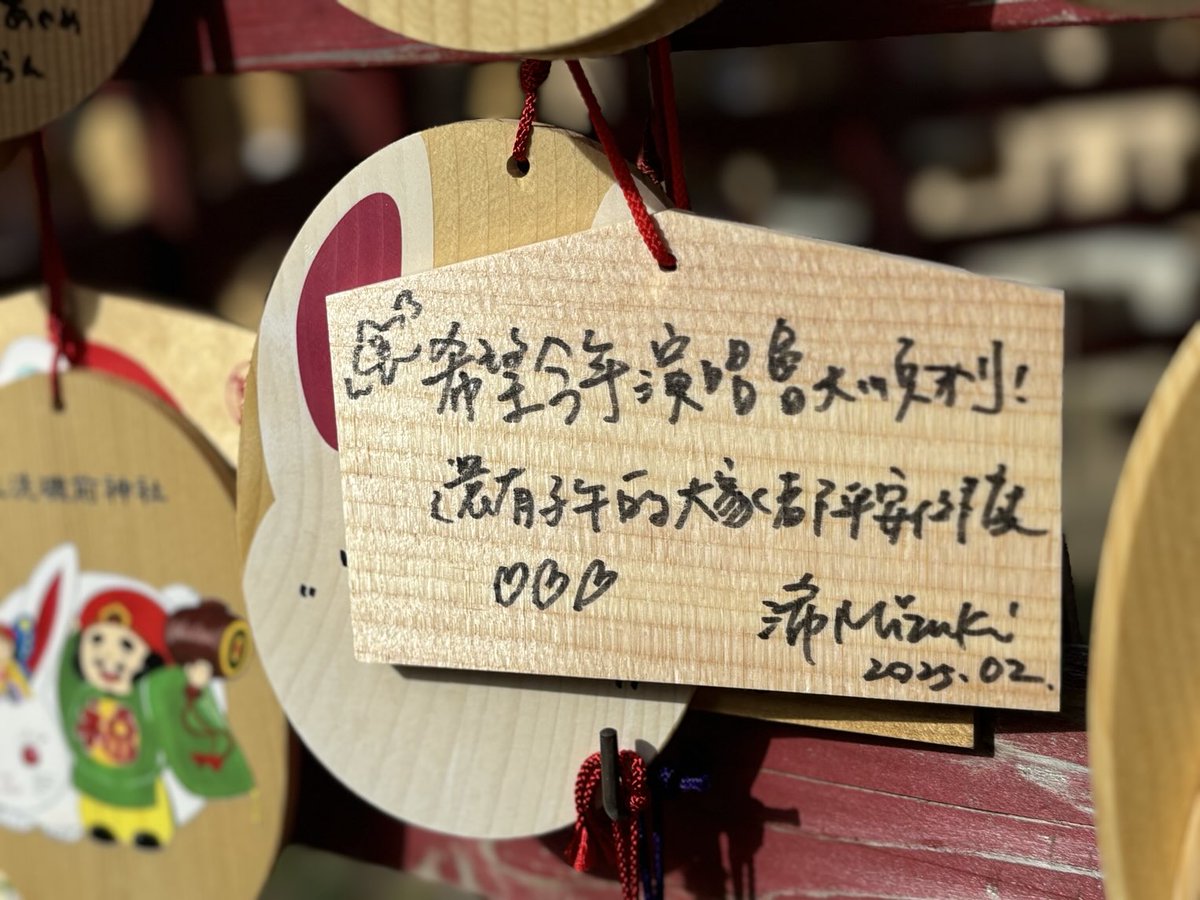 あやめ
らん
希望今年演唱會大順利!
還有子午的大家都平安健康
浠 Mizuki
2025.02.
洗磯前神社
福